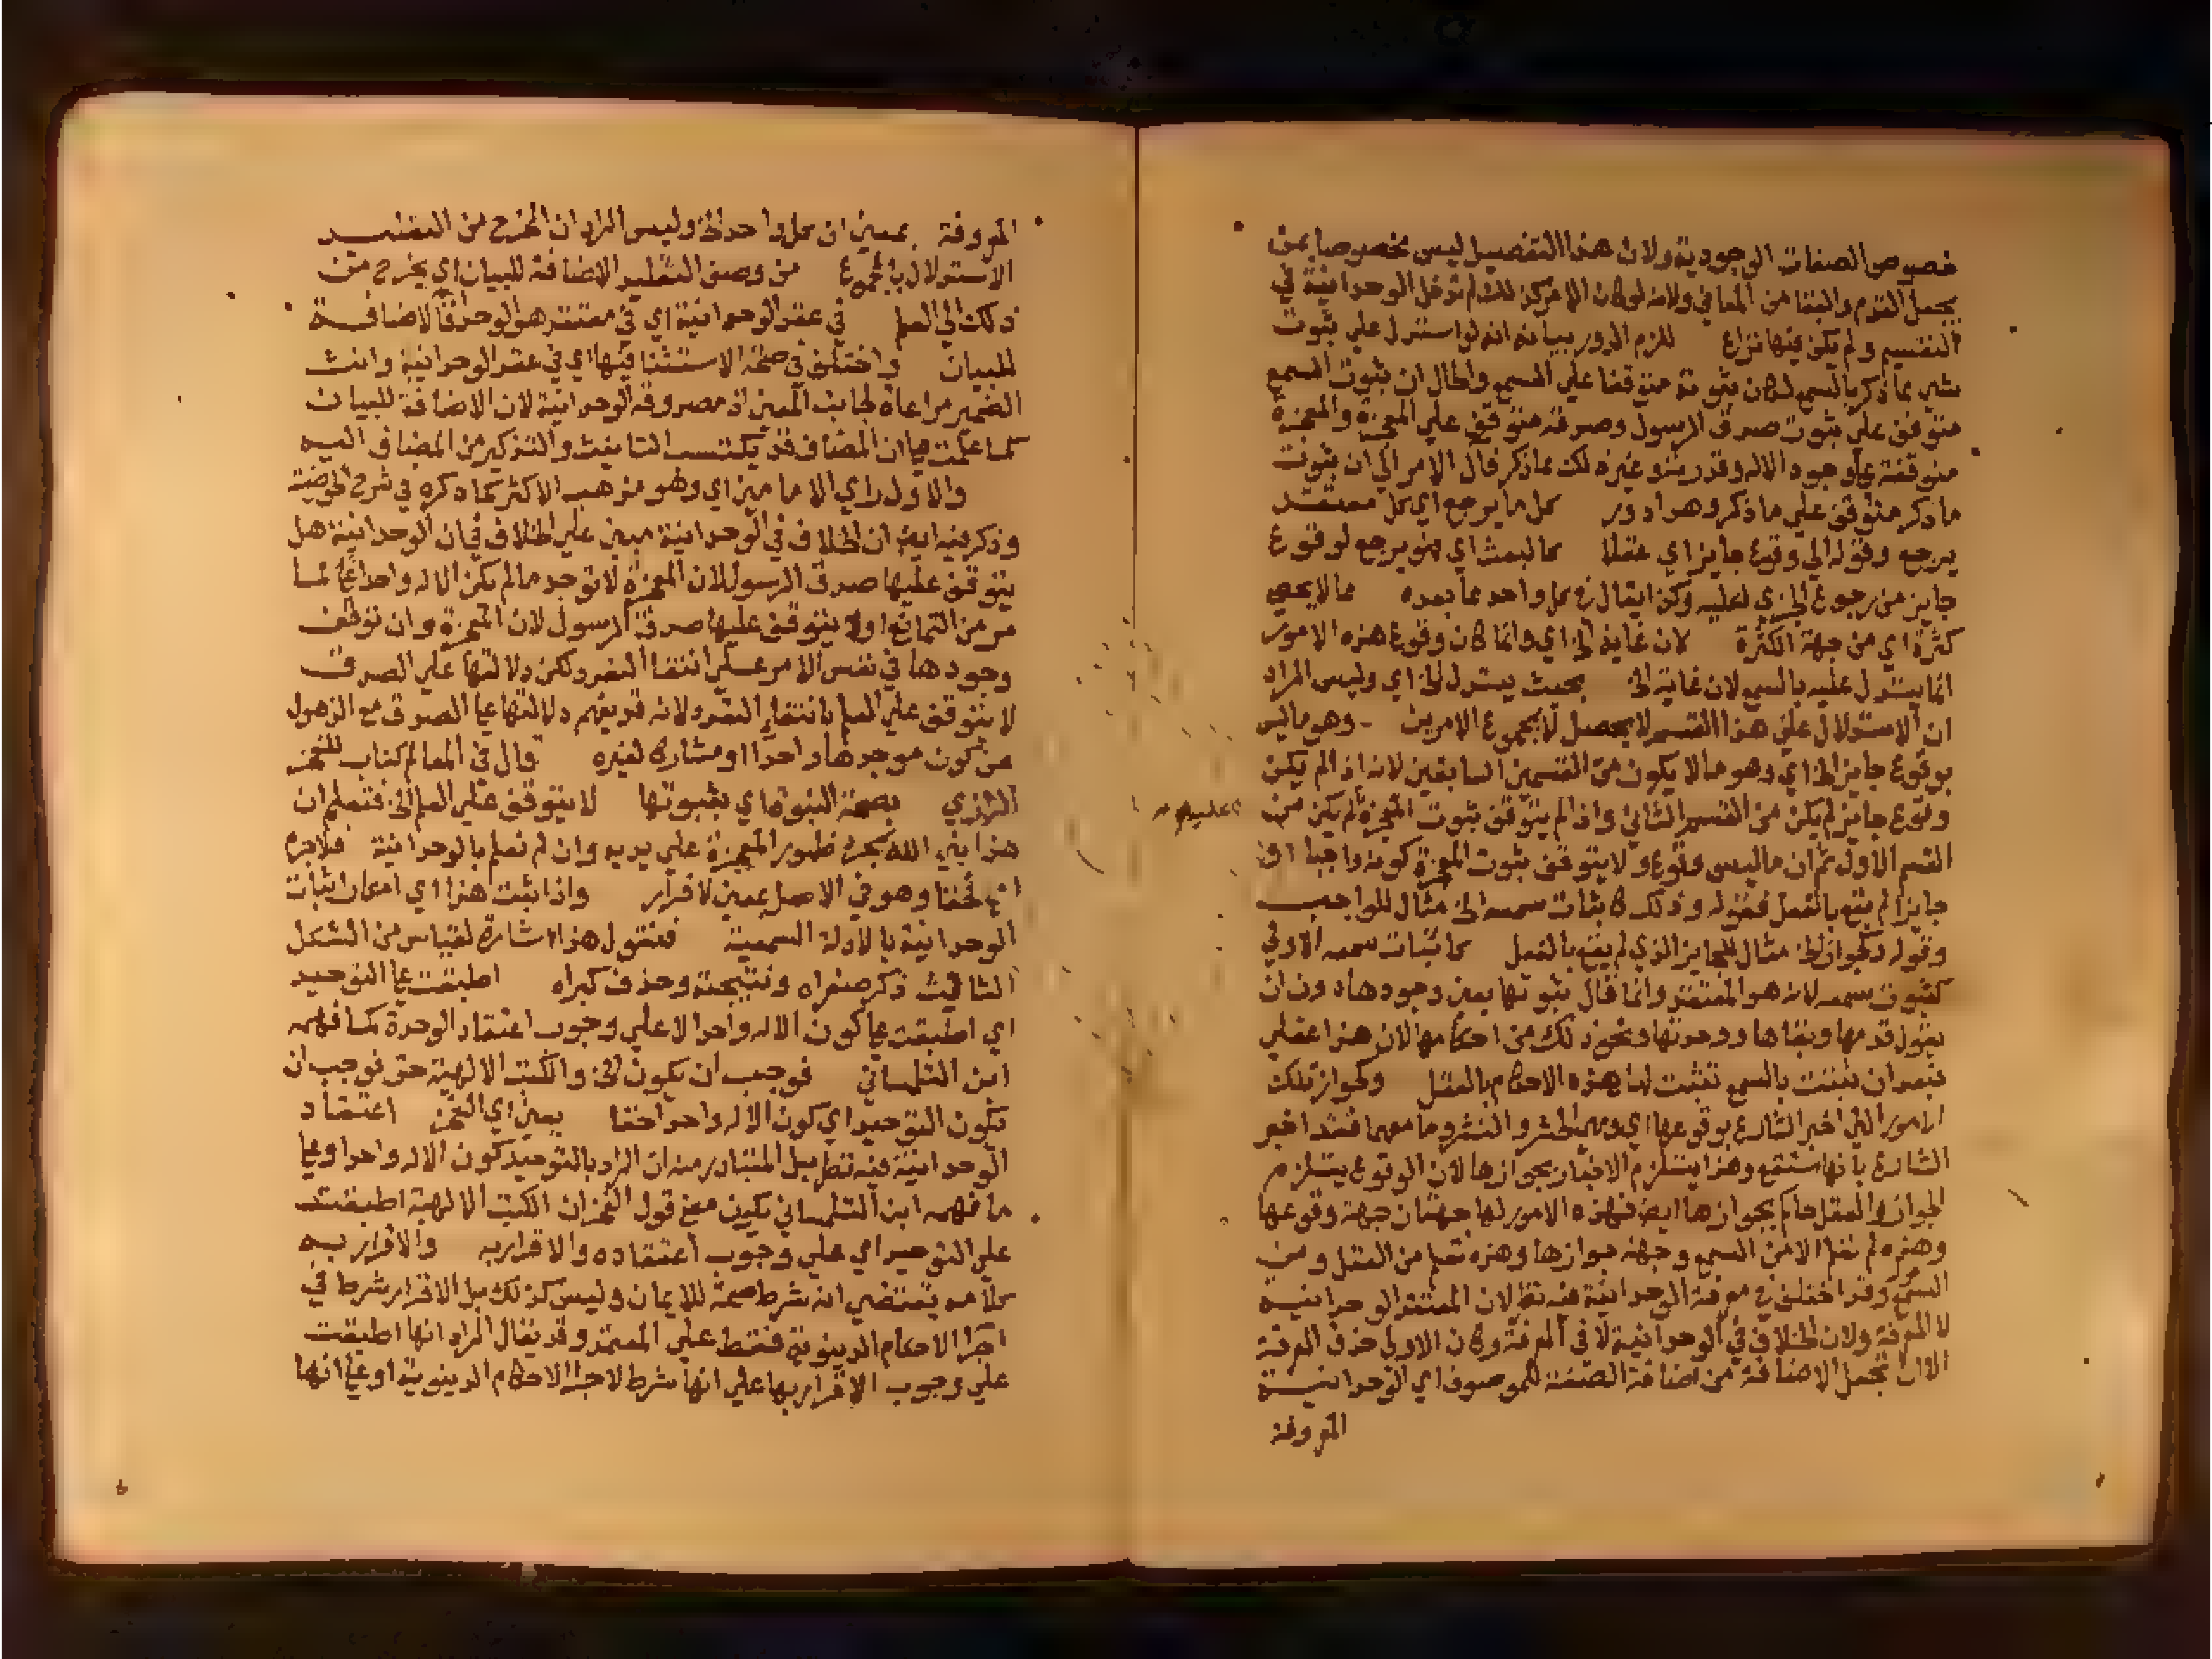 خصوص الصفات الوجودية ولان هذا التفصيل ليس مخصوصا بمن
يجعل القدم والبقا من المعاني ولانه لو كان الامر كذلك لم تدخل الوحدانية في
التقسيم ولم يكن فيها نزاع للزم الدور بيانه انه لو استدل علي ثبوت
شي مما ذكر بالسمع لكان ثبوته متوقفا علي السمع والحال ان ثبوت السمع
متوقف علي ثبوت صدق الرسول وصدقه متوقف علي المعجزة والمعجزة
متوقفة علي وجود الاله وقدرته وغير ذلك مما ذكر فال الامر الي ان ثبوت
ما ذكر متوقف علي ما ذكر وهو دور كل ما يرجع اي كل معتقد
يرجع وقوله الي وقوع جايز اي عقلا كالبعث اي فهو يرجع لوقوع
جايز من رجوع الجزي لكليه وكذا يقال في كل واحد مما بعده مما لا يحصي
كثرة اي من جهة الكثرة لان غاية الخ اي وانما كان وقوع هذه الامور
انما يستدل عليه بالسمع لان غاية الخ بحيث يستدل الخ اي وليس المراد
ان الاستدلال علي هذا القسم لا يحصل الا بمجموع الامرين وهو ما ليس
بوقوع جايز الخ اي وهو ما لا يكون من القسمين السابقين لانه اذا لم يكن
وقوع جايز لم يكن من القسم الثاني واذا لم يتوقف ثبوت المعجزة لم يكن من
عليه
القسم الاول ثم ان ما ليس وقوع ولا يتوقف ثبوت المعجزة كونه واجبا او
جايزا لم يقع بالفعل فقوله وذلك كاثبات سمعه الخ مثال للواجب
وقوله وجواز الخ مثال للجايز الذي لم يقع بالفعل كاثبات سمعه الاولي
كثبوت سمعه لانه هو المعتقد وانما قال ثبوتها بمعني وجودها دون ان
يقول قدمها وبقاها ووحدتها ونحو ذلك من احكامها لان هذا عقلي
فبعد ان ثبتت بالسمع تثبت لها هذه الاحكام بالعقل وكجواز تلك
الامور التي اخبر الشارع بوقوعها اي وهي الحشر والنشر وما معهما فقد اخبر
الشارع بانها ستقع وهذا يستلزم الاخبار بجوازها لان الوقوع يستلزم
الجواز والعقل حاكم بجوازها ايضا فهذه الامور لها جهتان جهة وقوعها
وهذه لم تعلم الا من السمع وجهة جوازها وهذه تعلم من العقل ومن
السمع وقد اختلف في معرفة الوحدانية فيه نظر لان المعتقد الوحدانية
لا المعرفة ولان الخلاف في الوحدانية لا في المعرفة وكان الاولي حذف المعرفة
الا ان تجعل الاضافة من اضافة الصفة للموصوف اي الوحدانية
المعروفة
المعروفة بمعني ان كل واحد الخ وليس المراد ان المخرج من التقليد
الاستدلال بالمجموع من وصف التقليد الاضافة للبيان اي يخرج من
ذلك الي العلم في عقد الوحدانية اي في معتقد هو الوحدانية فالاضافة
للبيان واختلف في صحة الاستثنا فيها اي في عقد الوحدانية وانث
الضمير مراعاة لجانب المعني اذ مصدوقه الوحدانية لان الاضافة للبيان
كما علمت ان المضاف قد يكتسب التانيث والتذكير من المضاف اليه
والاول راي الامامين اي وهو مذهب الاكثر كما ذكره في شرح
وذكر فيه ايضا ان الخلاف في الوحدانية مبني علي الخلاف في ان الوحدانية هل
يتوقف عليها صدق الرسول لان المعجزة لا توجد ما لم يكن الاله واحدا لما
مر من التمانع اولا يتوقف عليها صدق الرسول لان المعجزة وان توقف
وجودها في نفس الامر علي انتفا التعدد ولكن دلالتها علي الصدق
لا يتوقف علي العلم بانتفاء التعدد ولانه قد يفهم دلالتها علي الصدق مع الذهول
عن كون موجدها واحدا او مشاركا لغيره قال في المعالم كتاب للفخر
الرازي بصحة النبوة اي بثبوتها لا يتوقف علي العلم الخ فتعلم ان
هذا نبي الله بمجرد ظهور المعجزة علي يديه وان لم نعلم بالوحدانية فلا جرم
اي حقا وهو في الاصل بمعني لا فرار واذا ثبت هذا اي امكان اثبات
الوحدانية بالادلة السمعية فنقول هذا اشارة لقياس من الشكل
الثالث ذكر صغراه ونتيجته وحذف كبراه اطبقت علي التوحيد
اي اطبقت علي كون الاله واحدا لا علي وجوب اعتقاد الوحدة كما فهمه
ابن التلمساني فوجب ان يكون الخ والكتب الالهية حق فوجب ان
يكون التوحيد اي كون الاله واحدا حقا يعني اي الفخر اعتقاد
الوحدانية فيه نظر بل المتبادر منه ان المراد بالتوحيد كون الاله واحدا وعلي
ما فهمه ابن التلمساني يكون معني قول الفخر ان الكتب الالهية اطبقت
علي التوحيد اي علي وجوب اعتقاده والاقرار به والاقرار به
كلامه يقتضي انه شرط صحة للايمان وليس كذلك بل الاقرار شرط في
اجرا الاحكام الدنيوية فقط علي المعتمد وقد يقال المراد انها اطبقت
علي وجوب الاقرار بها علي انها شرط لاجرا الاحكام الدنيوية او علي انها